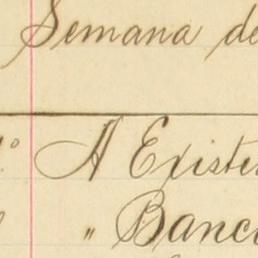 Semana de
A Existen
" Banco